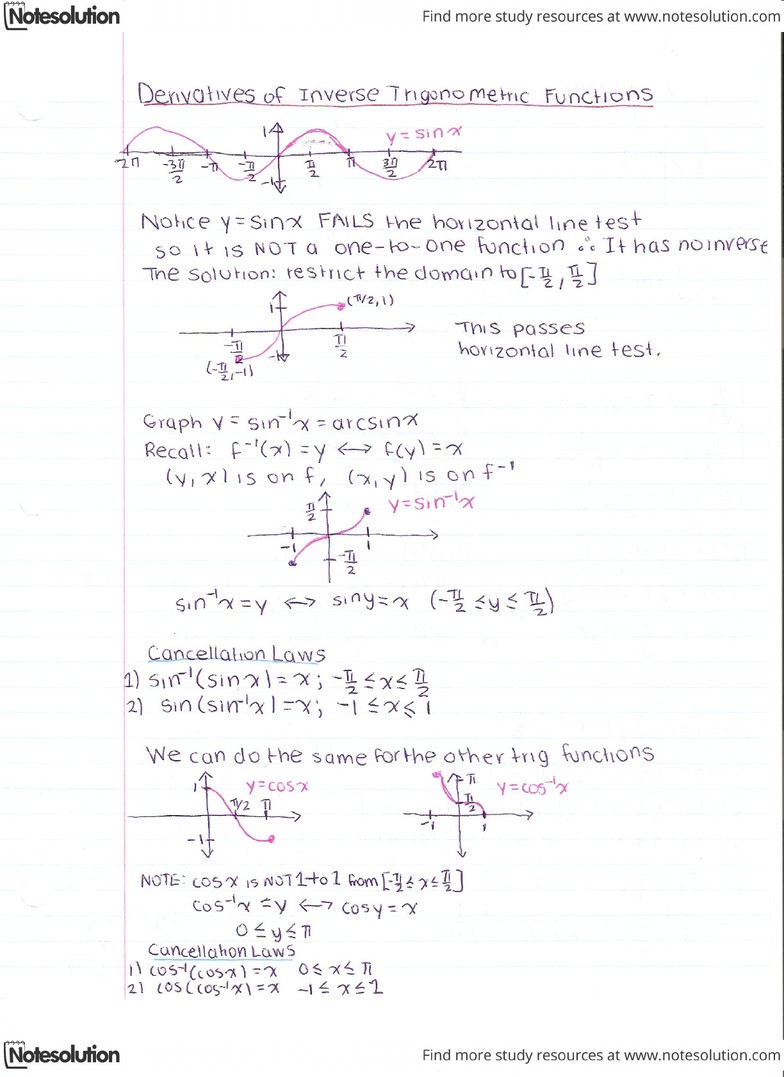 Notesolution
Find more study resources at www.notesolution.com
Derivatives of Inverse Trigonometric Functions
1
y = sinx
-2π -3π/2 -π -π/2 π/2 π 3π/2 2π
-1
Notice y = sinx FAILS the horizontal line test
so it is NOT a one-to-one function ∴ It has no inverse
The solution: restrict the domain to [-π/2, π/2]
1
(π/2, 1)
-π/2
π/2
-1
(-π/2, -1)
This passes
horizontal line test.
Graph y = sin⁻¹x = arcsinx
Recall: f⁻¹(x) = y ↔ f(y) = x
(y, x) is on f, (x, y) is on f⁻¹
π/2
y = sin⁻¹x
-1
1
-π/2
sin⁻¹x = y ↔ siny = x (-π/2 ≤ y ≤ π/2)
Cancellation Laws
1) sin⁻¹(sinx) = x; -π/2 ≤ x ≤ π/2
2) sin(sin⁻¹x) = x; -1 ≤ x ≤ 1
We can do the same for the other trig functions
1
y = cosx
π/2 π
-1
π
π/2
y = cos⁻¹x
-1
1
NOTE: cosx is NOT 1 to 1 from [-π/2 ≤ x ≤ π/2]
cos⁻¹x = y ↔ cosy = x
0 ≤ y ≤ π
Cancellation Laws
1) cos⁻¹(cosx) = x 0 ≤ x ≤ π
2) cos(cos⁻¹x) = x -1 ≤ x ≤ 1
Notesolution
Find more study resources at www.notesolution.com